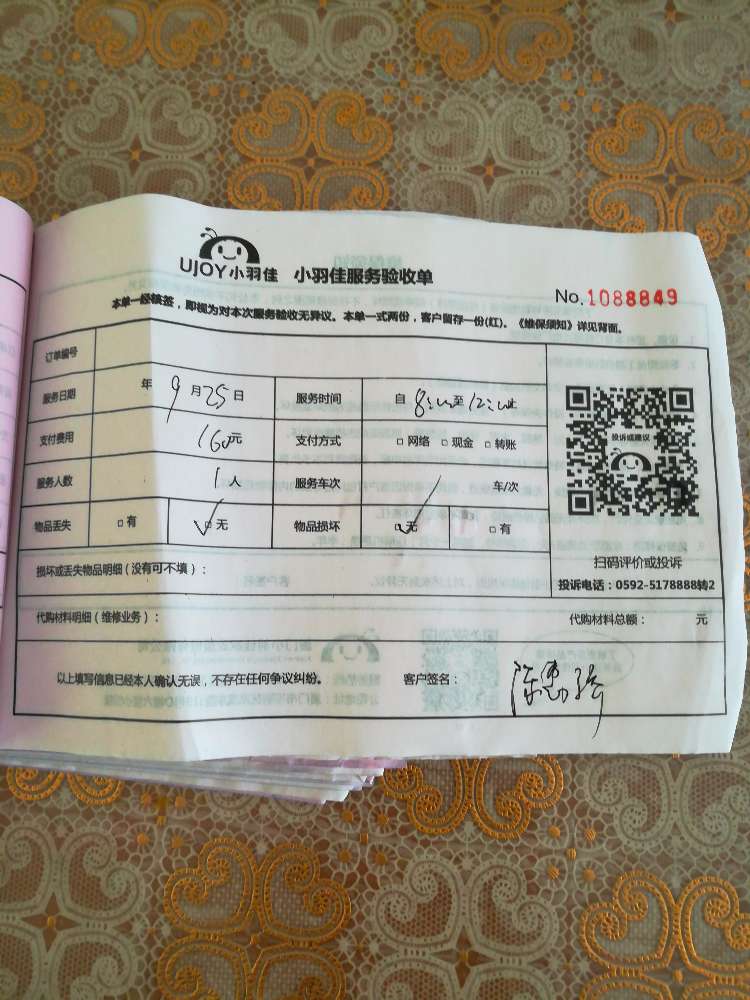 UJOY小羽佳 小羽佳服务验收单
No.1088849
本单一经核签，即视为对本次服务验收无异议。本单一式两份，客户留存一份(红)。《维保须知》详见背面。
订单编号
服务日期 年 9月25日 服务时间 自 8:00至12:00止
投诉或建议
支付费用 160元 支付方式 □ 网络 □ 现金 □ 转账
服务人数 1人 服务车次 车/次
物品丢失 □ 有 □ 无 物品损坏 □ 无 □ 有
扫码评价或投诉
损坏或丢失物品明细（没有可不填）：
投诉电话：0592-5178888转2
代购材料明细（维修业务）： 代购材料总额： 元
以上填写信息已经本人确认无误，不存在任何争议纠纷。 客户签名：